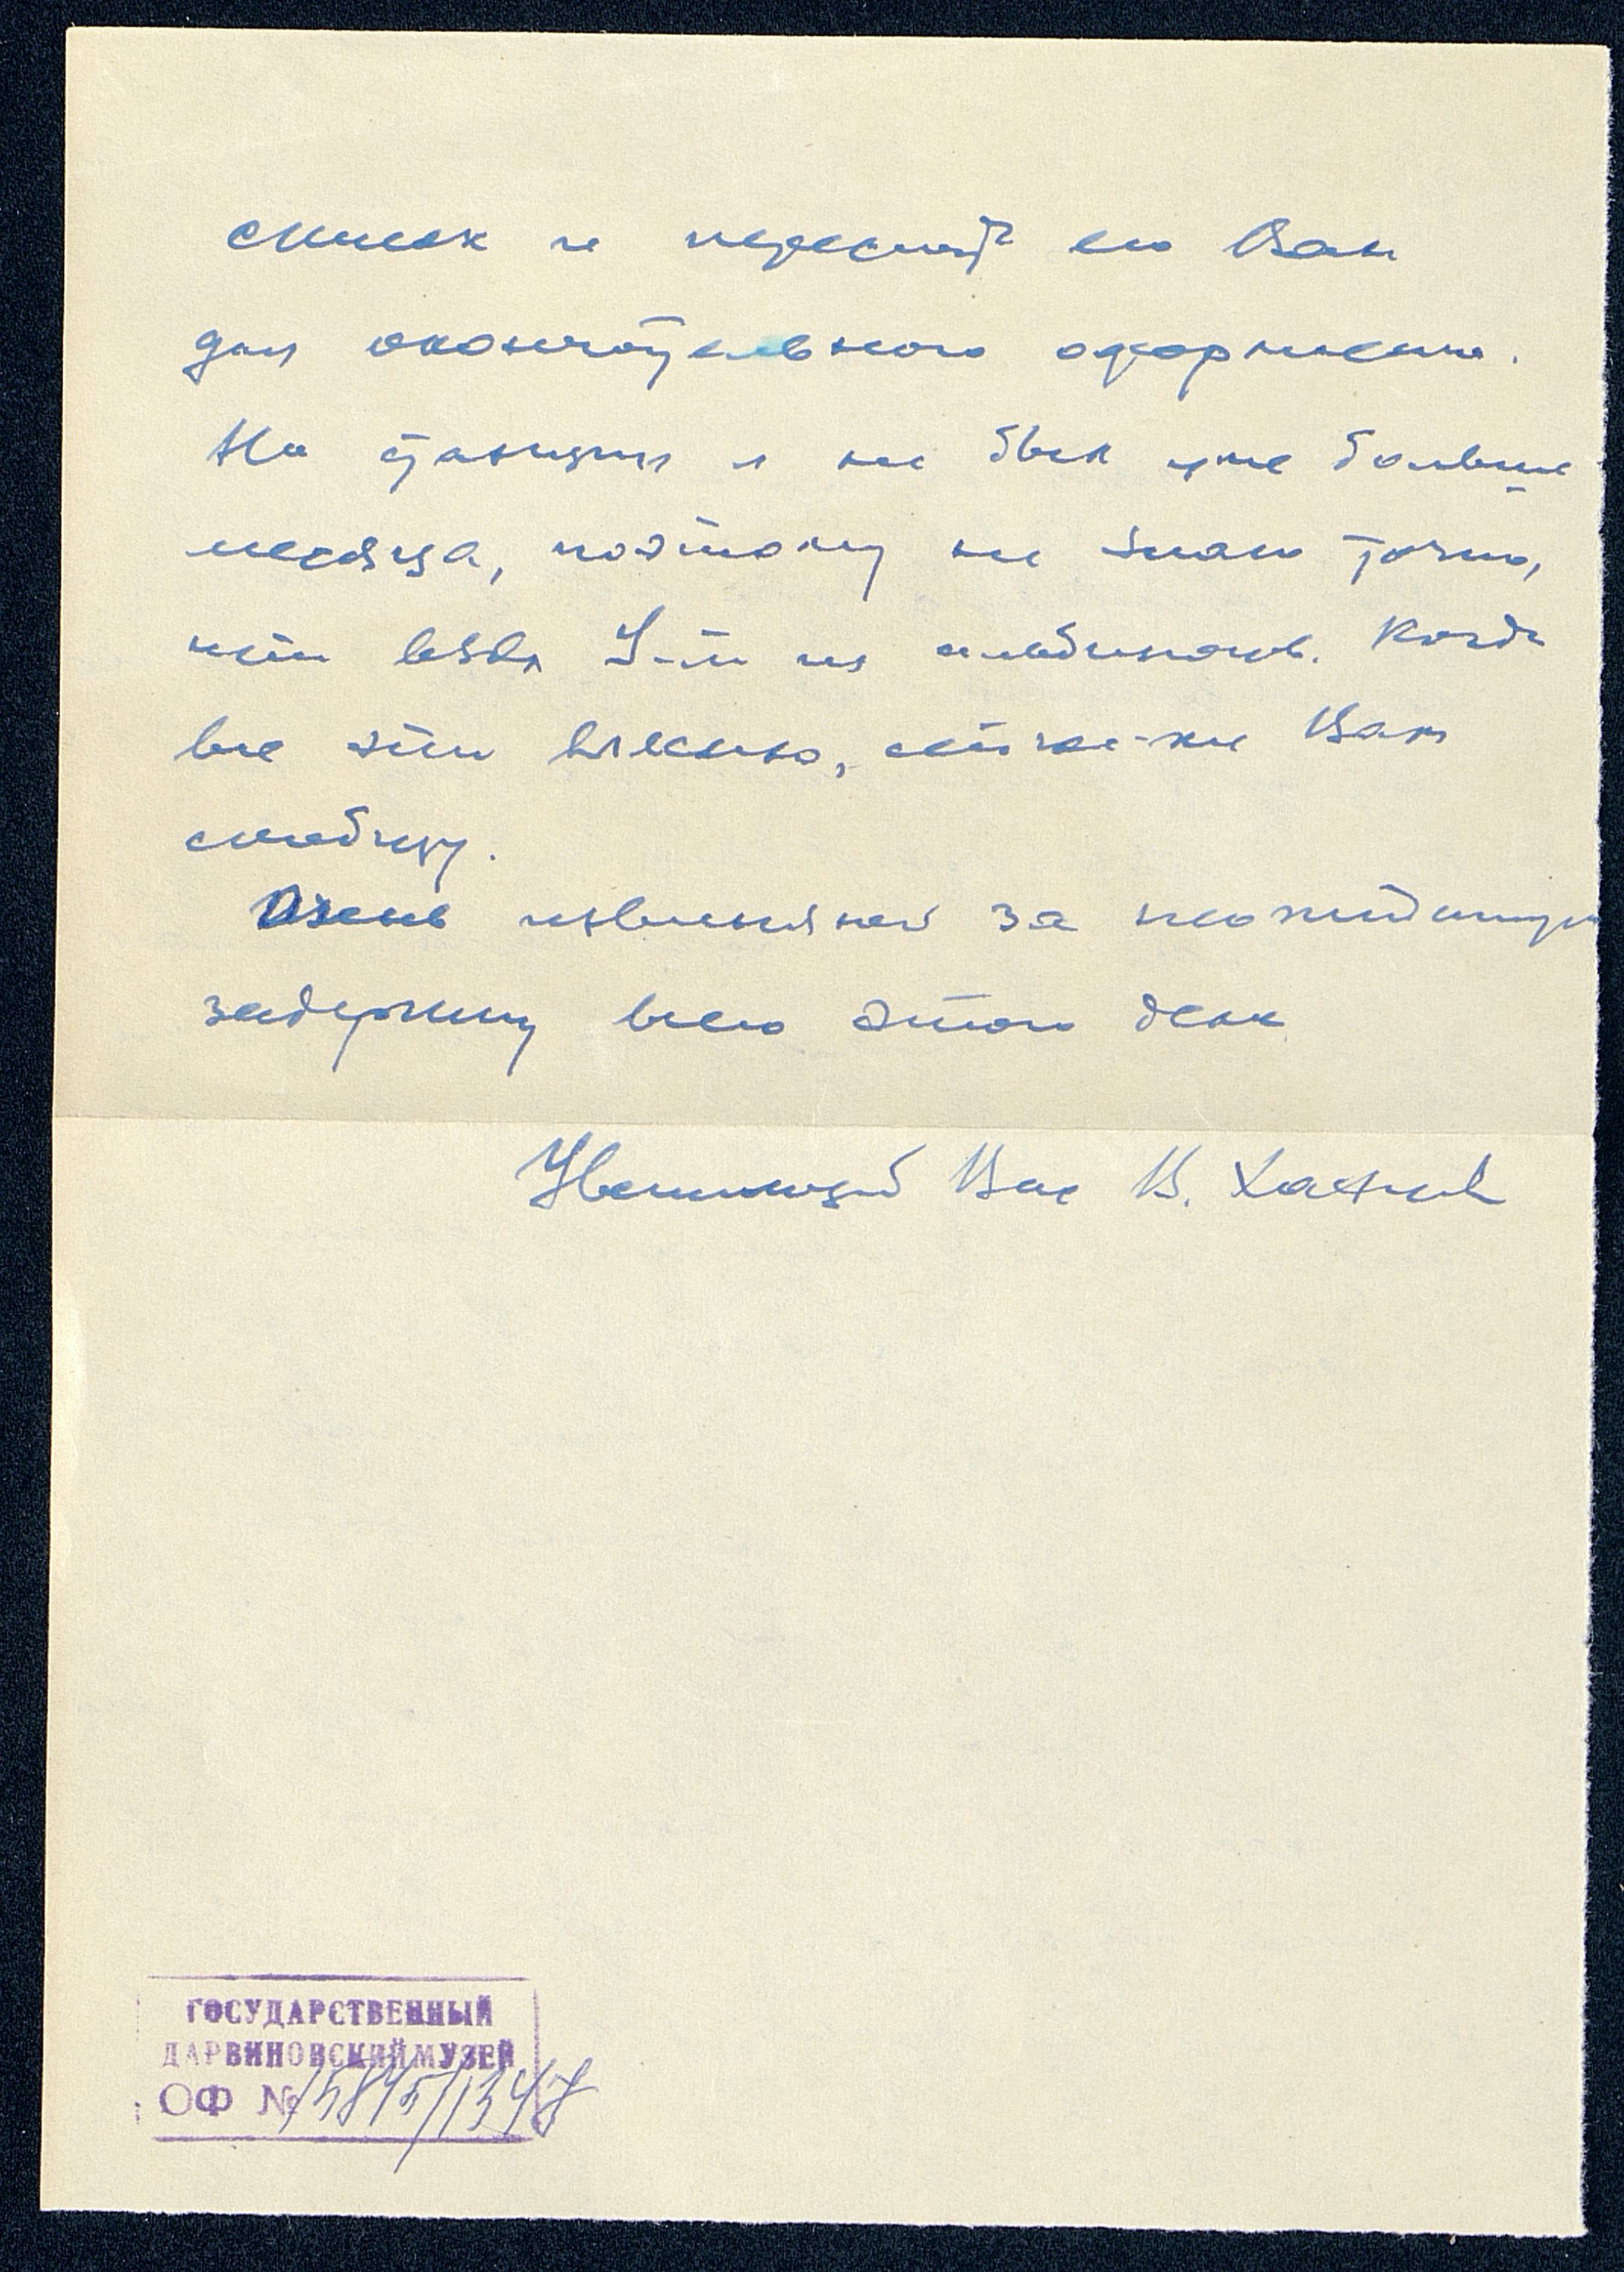 список и перешлют его Вам
для окончательного оформления.
На станции я не был уже больше
месяца, поэтому не знаю точно,
кто взял 5-ть из альбиносов. Когда
все это выясню, тотчас-же Вам
сообщу.
Очень извиняюсь за неожиданную
задержку всего этого дела
Уважающий Вас В.
ГОСУДАРСТВЕННЫЙ
ДАРВИНОВСКИЙ МУЗЕЙ
ОФ № 15845/1347